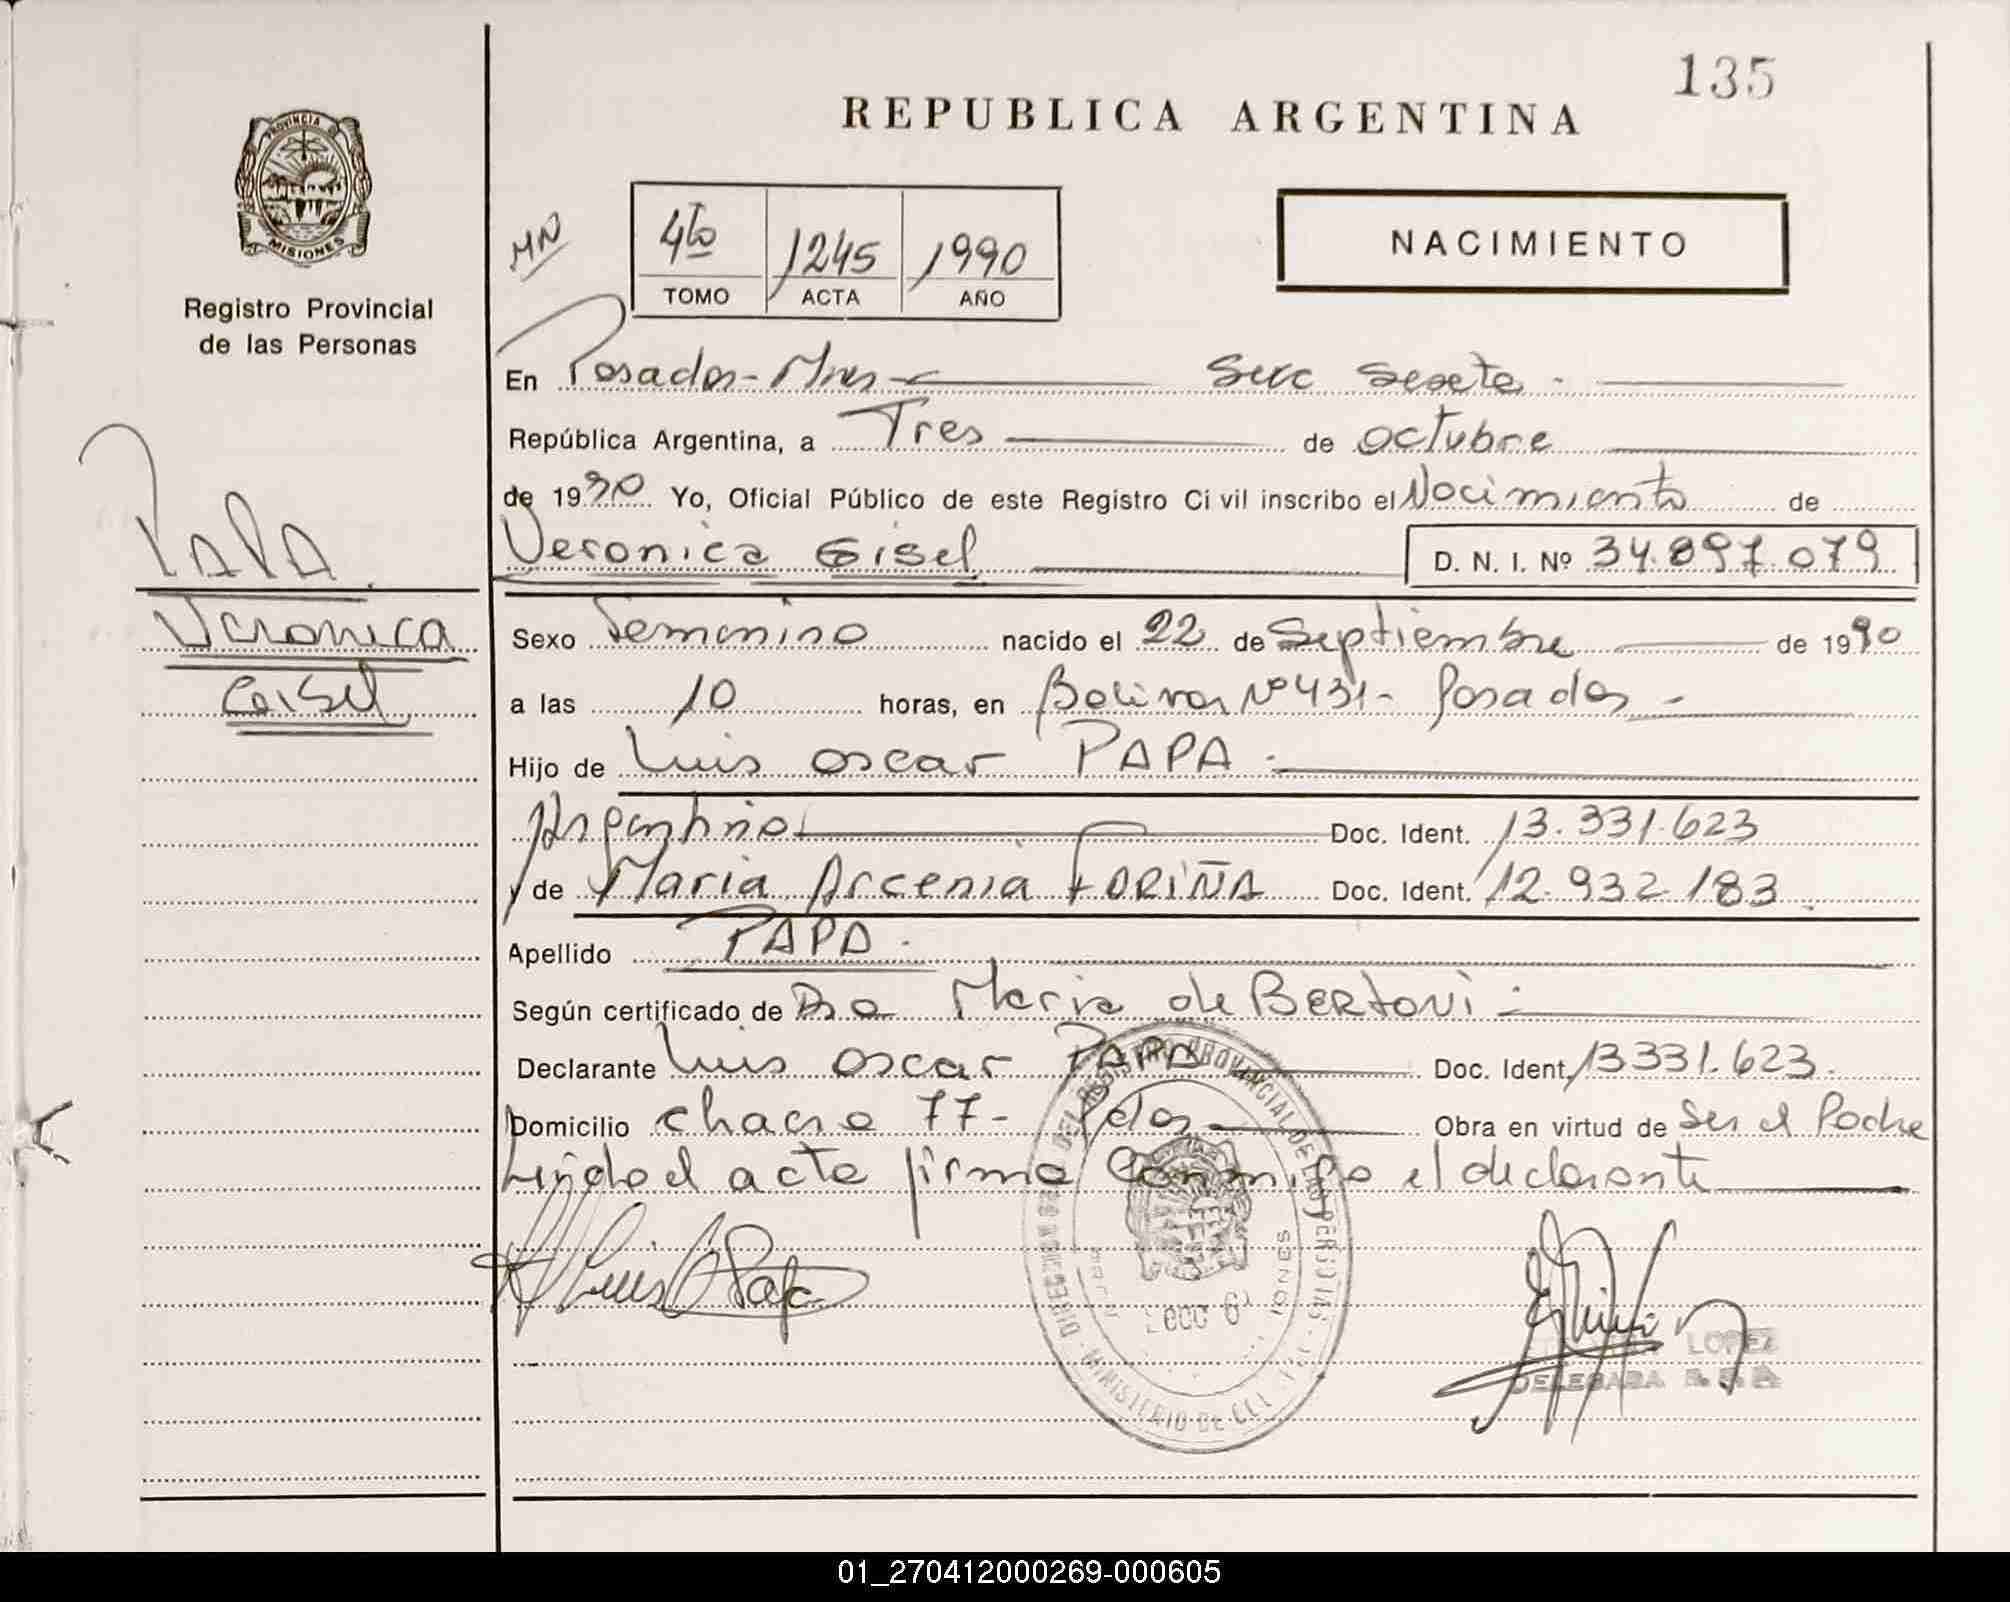 135
REPUBLICA ARGENTINA
PROVINCIA DE
MISIONES
Registro Provincial
de las Personas
MN
4to 1245 1990
TOMO ACTA AÑO
NACIMIENTO
En Posadas - Mnes - Secc Sexta -
República Argentina, a Tres de octubre
de 1990 Yo, Oficial Público de este Registro Ci vil inscribo el Nacimiento de
Veronica Gisel D. N. I. Nº 34.897.079
PAPA
Veronica
Gisel
Sexo Femenino nacido el 22 de Septiembre de 1990
a las 10 horas, en Bolivar Nº 431 - Posadas -
Hijo de Luis oscar PAPA -
Argentino Doc. Ident. 13.331.623
y de Maria Arcenia FORIÑA Doc. Ident. 12.932.183
Apellido PAPA.
Según certificado de Dra Maria de BERTONI -
Declarante Luis oscar PAPA Doc. Ident. 13331.623.
Domicilio chacra 77- Pdas Obra en virtud de Ser el Padre
Leida el acta firma conmigo el declarante
Luis O Papa
MINISTERIO DE
LOPEZ
DELEGADA
01_270412000269-000605